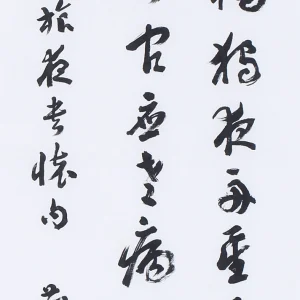 檣獨夜舟星
官應老病
旅夜書懷